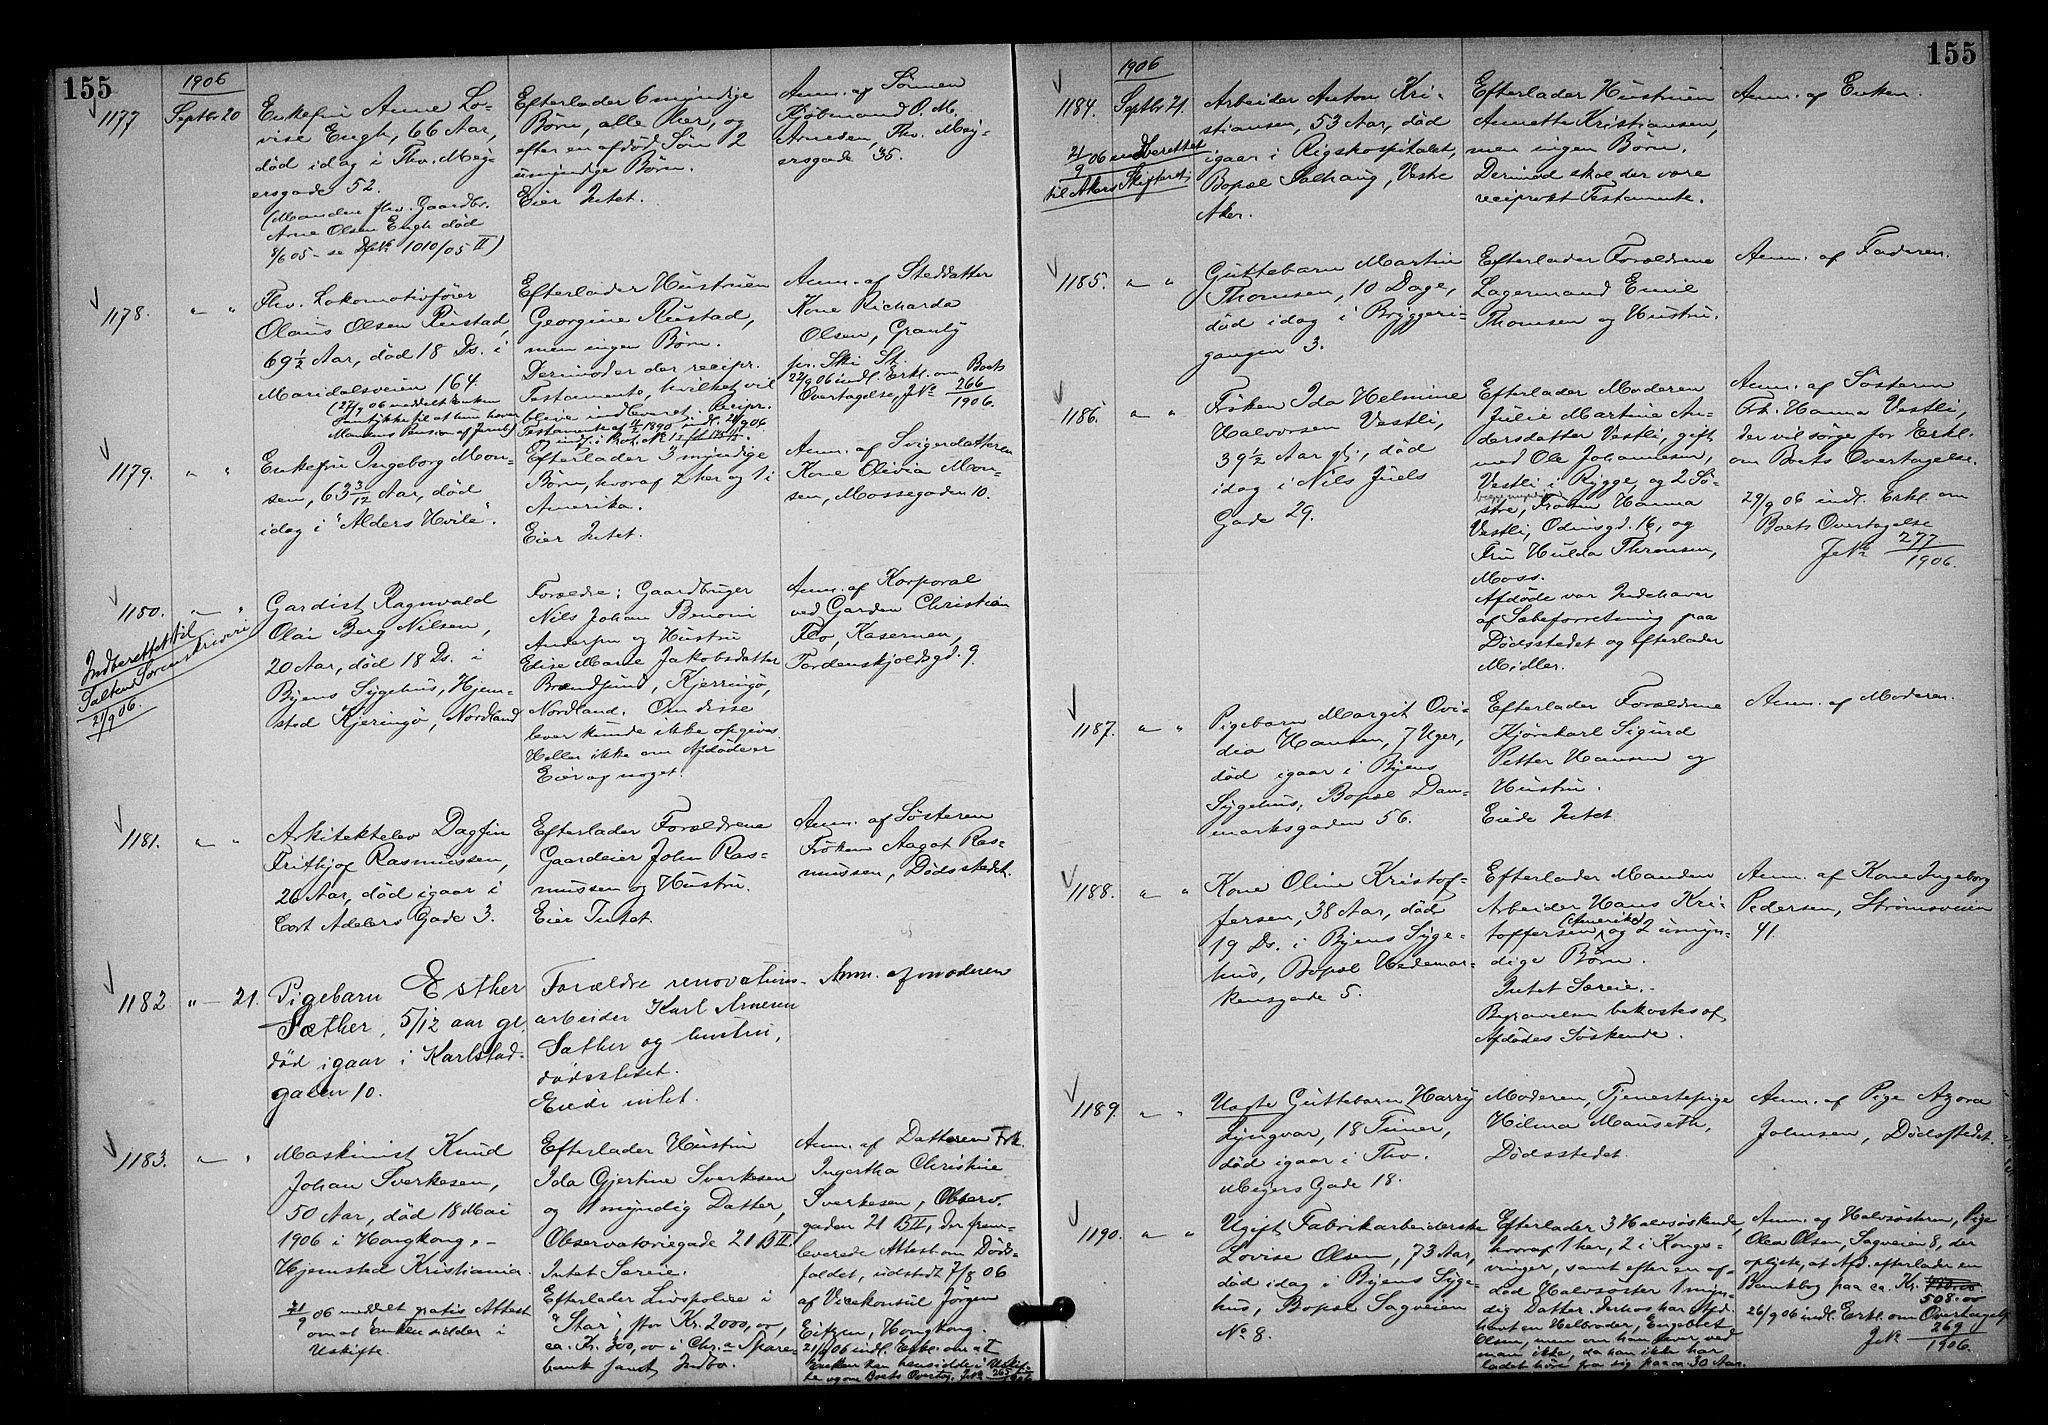 155
1906
1177
Septbr 20
Enkefru Anne Lo-
vise Engh, 66 Aar,
død idag i Thv. Mey-
ersgade 52.
(Manden fhv. Gaardbr.
Arne Olsen Engh død
8/6 05 - se Dfs№ 1010/05 II)
Efterlader 6 myndige
Børn, alle her, og
efter en afdød Søn 2
umyndige Børn.
Eier Intet.
Anm. af Sønnen
Kjøbmand O. M.
Arnesen, Thv. Mey-
ersgade 35.
1178.
" "
Fhv. Lokomotivfører
Olaus Olsen Rustad,
69 1/2 Aar, død 18 Ds. i
Maridalsveien 164.
(27/9 06 meddelt Enken
Samtykke til at hun hever
Mandens Pension af Jernb.)
Efterlader Hustruen
Georgine Rustad,
men ingen Børn.
Derimod er der recipr.
Testamente, hvilket vil
blive indleveret. Recipr.
Anm. af Steddatter
Kone Richarda
Olsen, Granby
pr. Ski St.
22/9 06 indl. Erkl. om Boets
Overtagelse, J№ 266/1906.
1179.
" "
Enkefru Ingeborg Mon-
sen, 63 3/12 Aar, død
idag i "Alders Hvile".
Efterlader 3 myndige
Børn, hvoraf 2 her og 1 i
Amerika.
Eier Intet.
Anm. af Svigerdatteren
Kone Olivia Mon-
sen, Mossegaden 10.
1180.
" "
Indberettet til
Salten Sorenskriveri
21/9 06.
Gardist Ragnvald
Olai Berg Nilsen,
20 Aar, død 18 Ds. i
Byens Sygehus, Hjem-
sted Kjeringø, Nordland
Forældre: Gaardbruger
Nils Johan Benoni
Andersen og Hustru
Elise Marie Jakobsdatter
Brændsund, Kjerringø,
Nordland. Om disse
lever kunde ikke opgives.
Heller ikke om Afdøde er
Eier og noget.
Anm. af Korporal
ved Garden Christian
Flo, Kasernen,
Tordenskjoldsgd. 9.
1181.
" "
Arkitektelev Dagfin
Frithjof Rasmussen,
20 Aar, død igaar i
Cort Adelers Gade 3.
Efterlader Forældrene
Gaardeier John Ras-
mussen og Hustru.
Eier Intet.
Anm. af Søsteren
Frøken Aagot Ras-
mussen, Dødsstedet.
1182
" — 21.
Pigebarn Esther
Sæther, 5/12 aar gl.
død igaar i Karlstad-
gaten 10.
Forældre renovations-
arbeider Karl Arnesen
Sæther og hustru,
dødsstedet.
Eiede intet.
Anm. af moderen
1183.
" "
Maskinist Knud
Johan Sverkesen,
50 Aar, død 18 Mai
1906 i Hongkong, -
Hjemsted Kristiania.
21/9 06 meddelt gratis Attest
om at Enken sidder i
Uskifte.
Efterlader Hustru
Ida Gjertine Sverkesen
og 1 myndig Datter,
Observatoriegade 21 B II.
Intet Særeie.
Efterlader Livspolice i
"Star" stor Kr. 2000,00,
ca. Kr. 300,00 i Chr.a Spare-
bank samt Indbo.
Anm. af Datteren Frk.
Ingertha Christine
Sverkesen, Observ.
gaden 21 B II, der frem-
leverede Attest om Døds-
faldet, udstedt 7/8 06
af Vicekonsul Jørgen
Eitzen, Hongkong.
21/9 06 indl. Erkl. om at
Enken kan hensidde i Uskif-
te og om Boets Overtag. J№ 265/1906
155
1906
1184.
Septbr 21.
21/9 06 indberettet
til Akers Skifteret
Arbeider Anton Kri-
stiansen, 53 Aar, død
igaar i Rigshospitalet,
Bopæl Solhaug, Vestre
Aker.
Efterlader Hustruen
Annette Kristiansen,
men ingen Børn.
Derimod skal der være
reciprokt Testamente.
Anm. af Enken.
1185.
" "
Guttebarn Martin
Thomsen, 10 Dage,
død idag i Bryggeri-
gangen 3.
Efterlader Forældrene
Lagermand Emil
Thomsen og Hustru.
Anm. af Faderen.
1186.
" "
Frøken Ida Helmine
Halvorsen Vestli,
39 1/2 Aar gl., død
idag i Nils Juels
Gade 29.
Efterlader Moderen
Julie Martine An-
dersdatter Vestli, gift
med Ole Johannesen,
Vestli i Rygge, og 2 Sø-
begge myndige
stre, Frøken Hanna
Vestli, Odinsgd. 16, og
Fru Hulda Thronsen,
Moss.
Afdøde var Indehaver
af Sæbeforretning paa
Dødsstedet og efterlader
Midler.
Anm. af Søsteren
Frk. Hanna Vestli,
der vil sørge for Erkl.
om Boets Overtagelse.
29/9 06 indl. Erkl. om
Boets Overtagelse
J№ 277/1906.
1187.
" "
Pigebarn Margit Ovi-
dia Hansen, 7 Uger,
død igaar i Byens
Sygehus, Bopæl Dan-
marksgaden 56.
Efterlader Forældrene
Kjørekarl Sigurd
Petter Hansen og
Hustru.
Eiede Intet.
Anm. af Moderen.
1188.
" "
Kone Oline Kristof-
fersen, 38 Aar, død
19 Ds. i Byens Syge-
hus, Bopæl Hedemar-
kensgade 5.
Efterlader Manden
Arbeider Hans Kri-
(Amerika)
toffersen, og 2 umyn-
dige Børn.
Intet Særeie. -
Begravelsen bekostes af
Afdødes Søskende.
Anm. af Kone Ingeborg
Pedersen, Strømsveien
41.
1189.
" "
Uægte Guttebarn Harry
Lyngvar, 18 Timer,
død igaar i Thv.
Meyers Gade 18.
Moderen, Tjenestepige
Hilma Manseth,
Dødsstedet.
Anm. af Pige Azora
Johnsen, Dødsstedet.
1190.
" "
Ugift Fabrikarbeiderske
Lovise Olsen, 73 Aar,
død idag i Byens Syge-
hus, Bopæl Sagveien
№ 8.
Efterlader 3 Halvsøskende,
hvoraf 1 her, 2 i Kongs-
vinger, samt efter en af-
død Halvsøster 1 myn-
dig Datter. Derhos har Afd.
havt en Helbroder, Engebret
Olsen, men om han lever ved
man ikke, da han ikke har
ladet høre fra sig paa ca 30 Aar.
Anm. af Halvsøsteren, Pige
Olea Olsen, Sagveien 8, der
oplyste, at Afd. efterlader en
Bankbog paa ca. Kr.
508.00
26/9 06 indl. Erkl. om Overtagelse
J№ 269/1906.